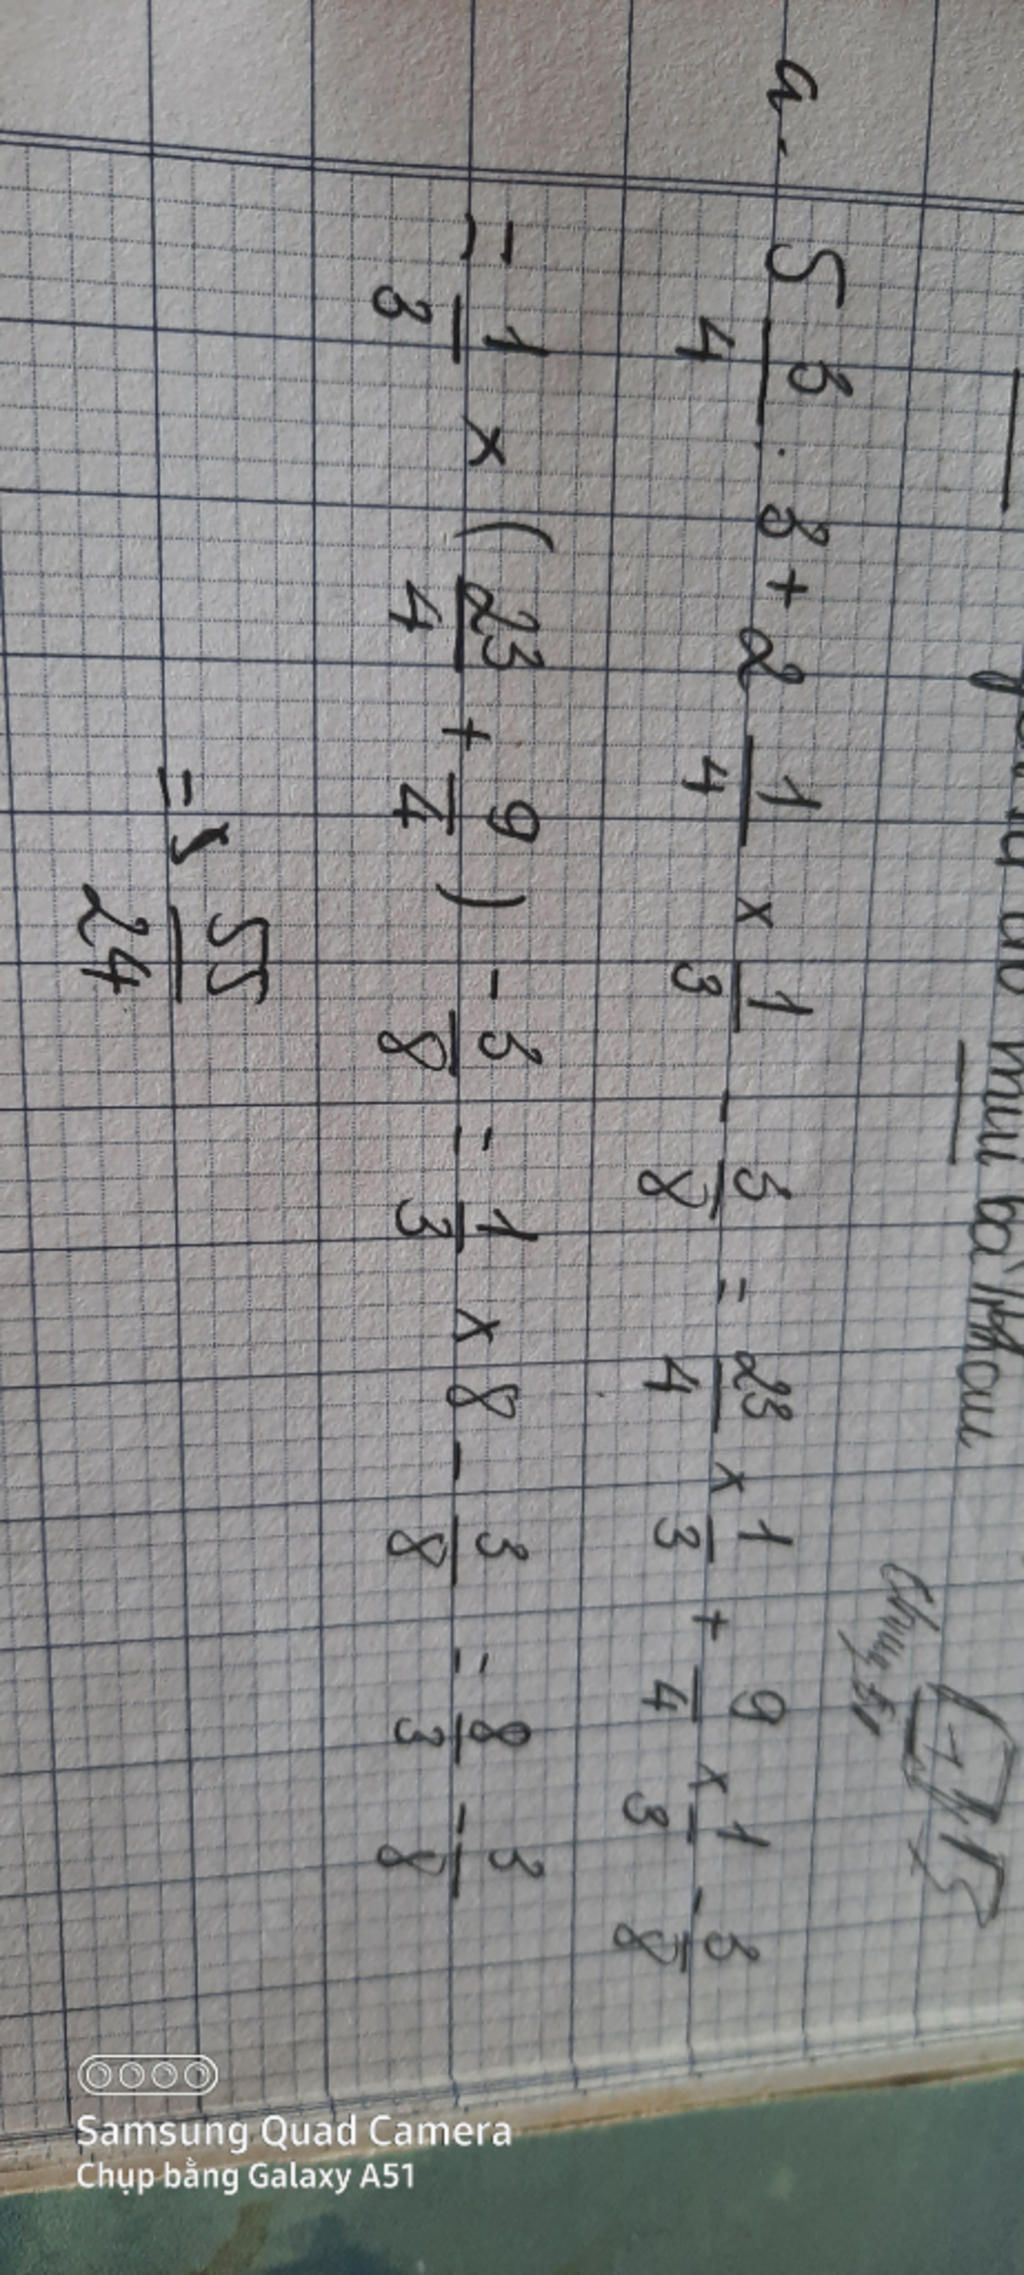 a. 5 3/4 : 3 + 2 1/4 x 1/3 - 3/8 = 23/4 x 1/3 + 9/4 x 1/3 - 3/8
= 1/3 x (23/4 + 9/4) - 3/8 = 1/3 x 8 - 3/8 = 8/3 - 3/8
= 55/24
Samsung Quad Camera
Chụp bằng Galaxy A51